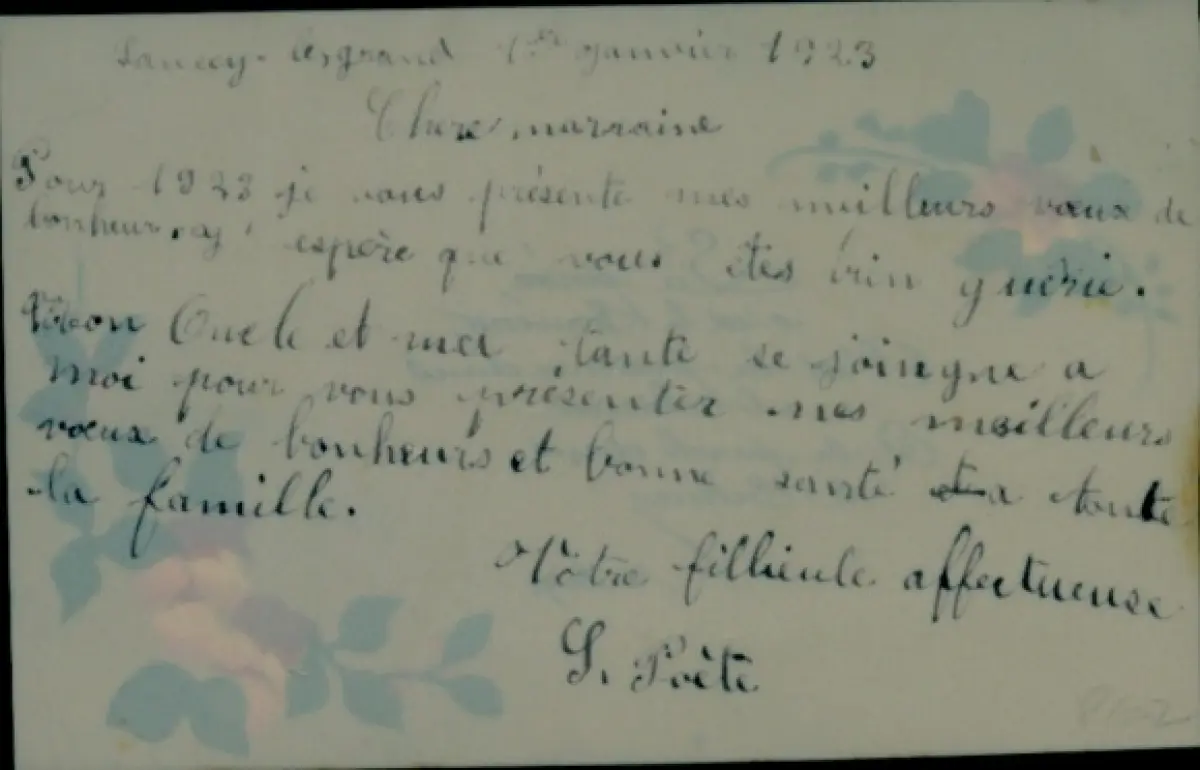 legrand 1er janvier 1923
Chere marraine
Pour 1923 je vous présente mes meilleurs vœux de
bonheur. j'espère que vous êtes bien guérie.
Oncle et ma tante se joingne a
moi pour vous présenter mes meilleurs
vœux de bonheurs et bonne santé a toute
la famille.
Vôtre fillieule affectueuse
S. Poète